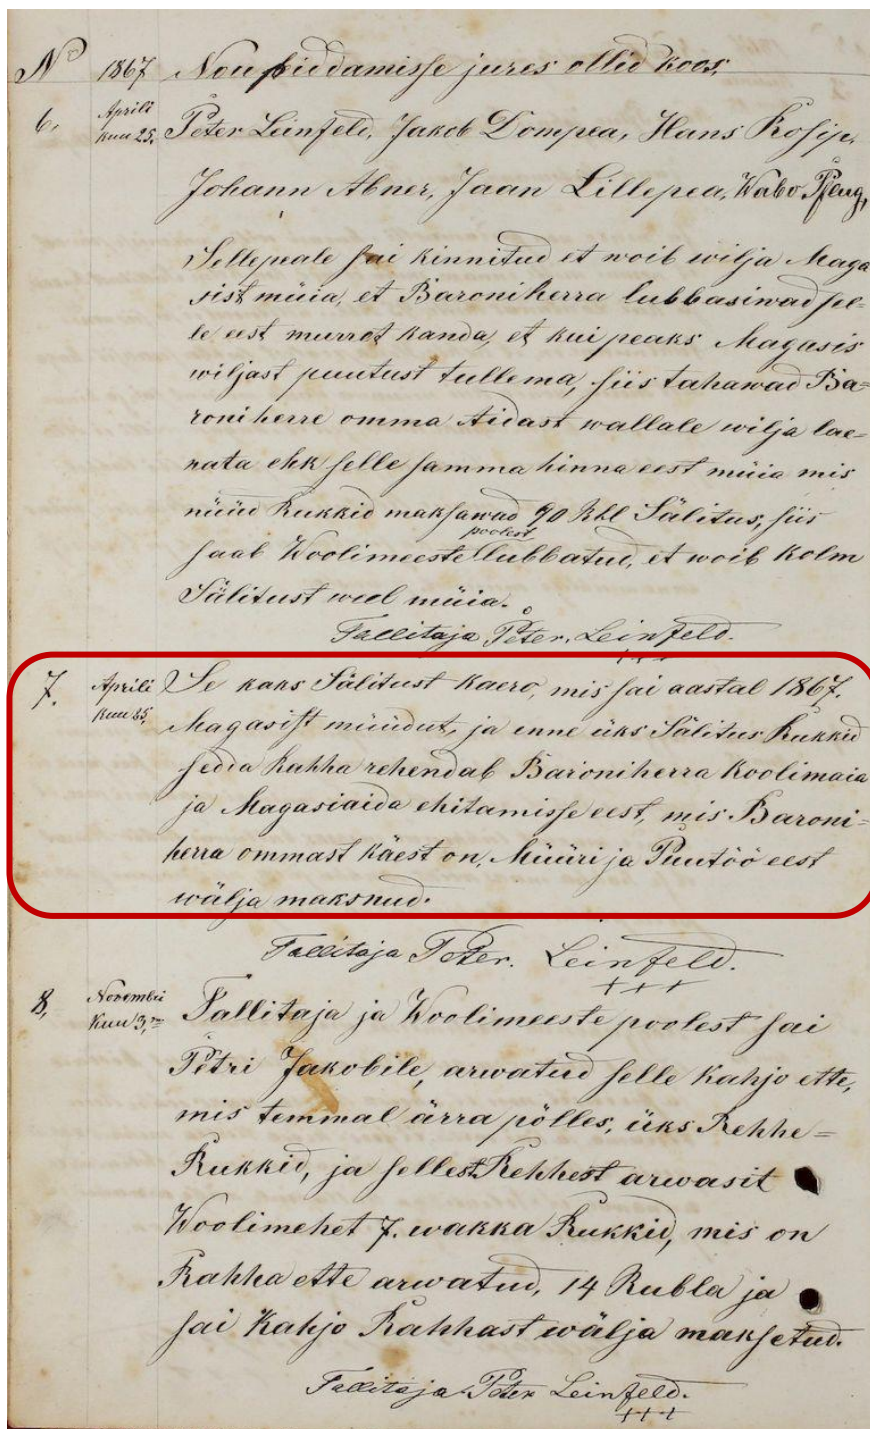 No 1867 Nou piddamisse jures ollid koos,
6. Aprili kuu 25. Peter Leinfeld, Jakob Dompea, Hans Rosip,
Johann Abner, Jaan Lillepea, Wabo
Sellepeale sai kinnitud et woib wilja Maga
sist müia, et Baroniherra lubbasiwad sel-
le eest murrot kanda, et kui peaks Magasis
wiljast puutust tullema, siis tahawad Ba-
roniherre omma Aidast wallale wilja lae-
nata ehk selle samma hinna eest müia mis
nüüd Rukkid maksawad 90 Rbl Sälitus, siis
saab Woolimeeste poolest lubbatud, et woib kolm
Sälitust weel müia.
Tallitaja Peter. Leinfeld.
+++
7. Aprili kuu 25, Se kaks Sälitust kaero, mis sai aastal 1867.
Magasist müüdut, ja enne üks Sälitus Rukkid
sedda Rahha rehendab Baroniherra Koolimaia
ja Magasiaida ehitamisse eest, mis Baroni-
herra ommast käest on, Müüri ja Puutöö eest
wälja maksnud.
Tallitaja Peter. Leinfeld.
+++
8, Novembri kuu 3, Tallitaja ja Woolimeeste poolest sai
Petri Jakobile, arwatud selle Kahjo ette,
mis temmal ärra pölles, üks Rehhe-
Rukkid, ja sellest Rehhest arwasit
Woolimehet 7. wakka Rukkid, mis on
Rahha ette arwatud, 14 Rubla ja
sai Kahjo Rahhast wälja maksetud.
Tallitaja Peter Leinfeld.
+++